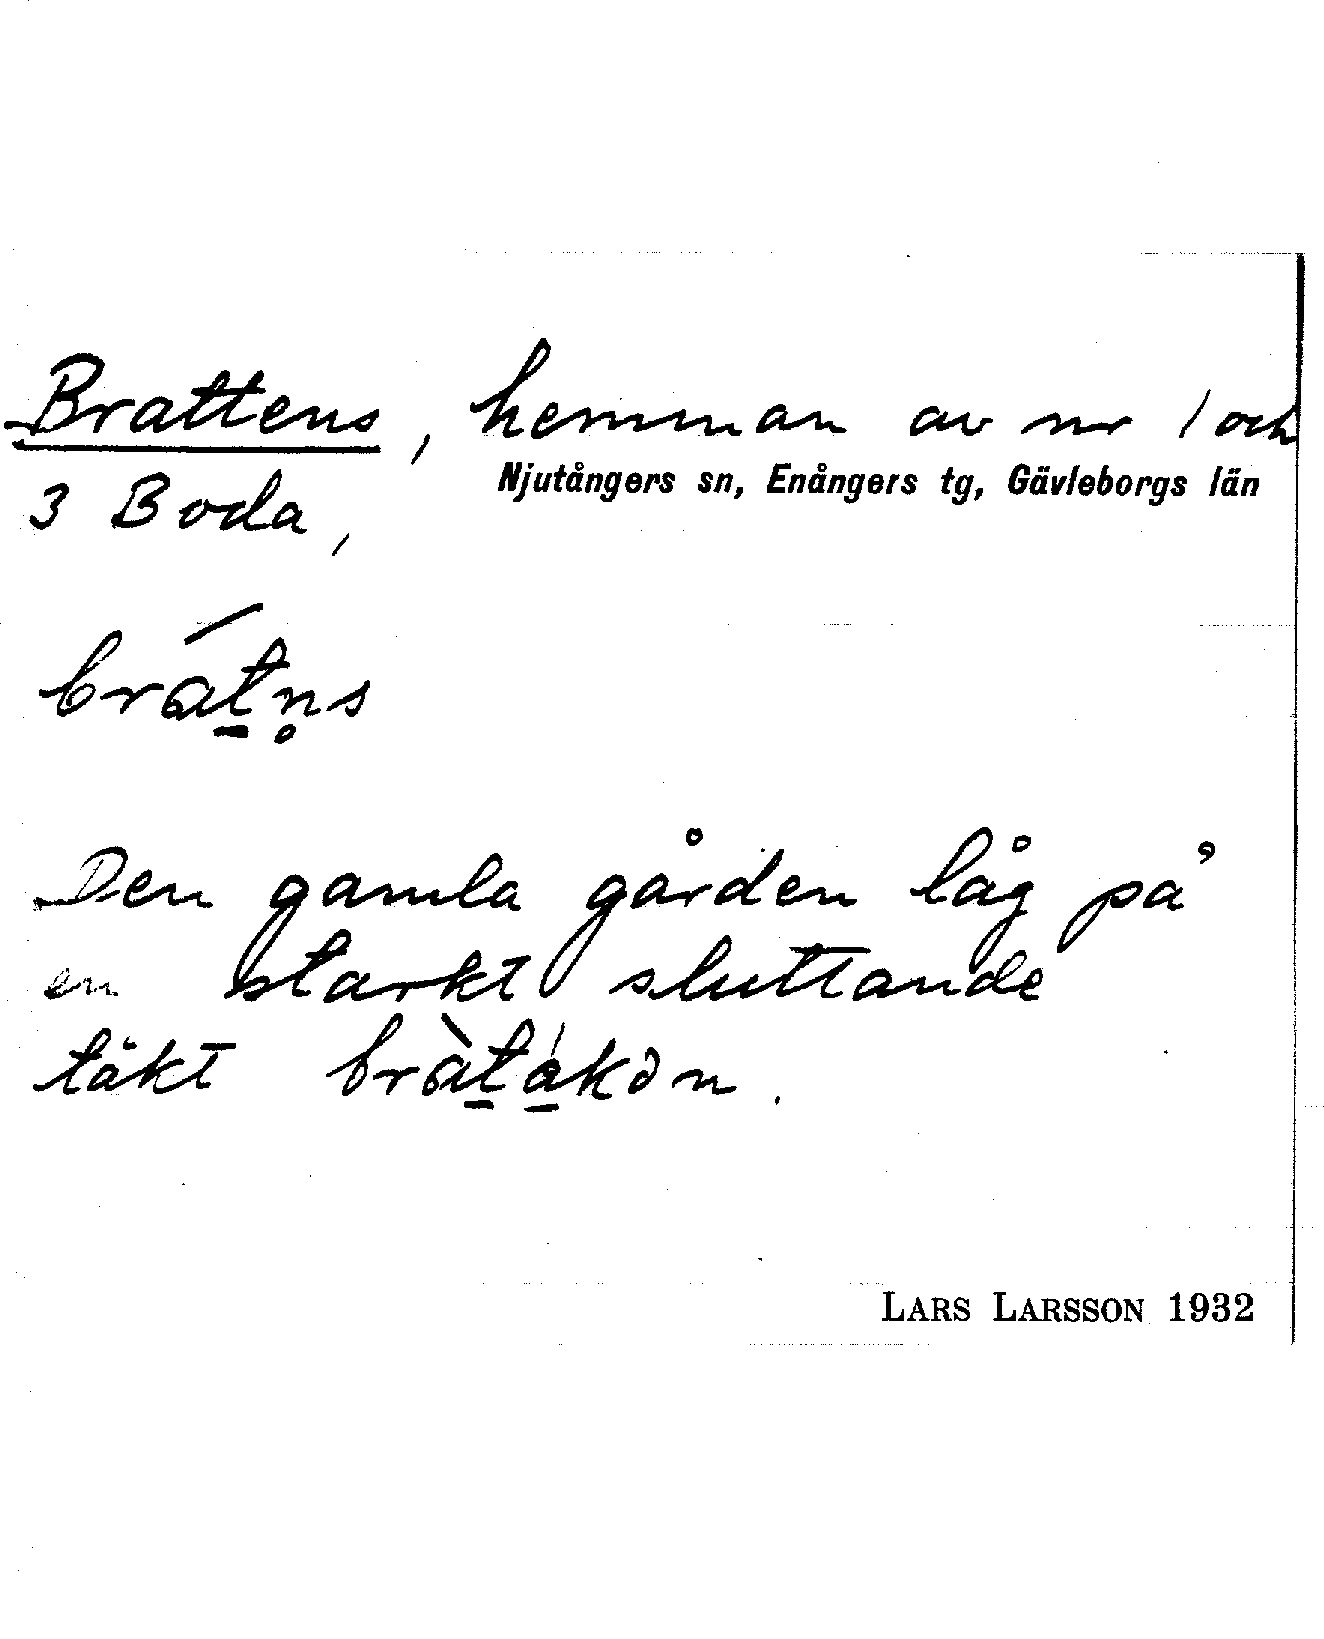 Brattens, hemman av nr 1 och
Njutångers sn, Enångers tg, Gävleborgs län
3 Boda,
brát̠n̥s
Den gamla gården låg på
en starkt sluttande
täkt bràt̠á̠kən.
LARS LARSSON 1932